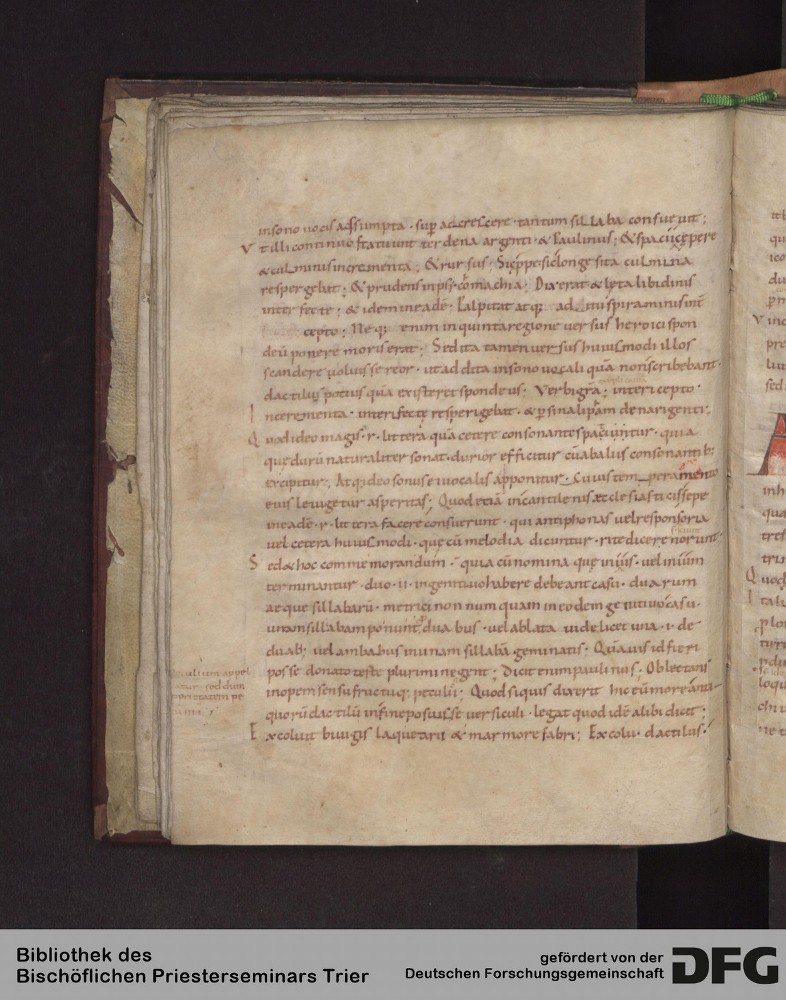 in sono vocis adsumpta · sup̄ accrescere · tantum sillaba consuevit ;
Vt illi continuo statuunt ter dena argenti · & Paulinus ; & spacii cępere
& culminis incrementa ; & rursus · Sicęppe sic longe sita culmina
respergebat ; & prudens in psichomachia ; Dixerat & lęta libidinis
interfectę ; & idem in eadē · Palpitat atq; ad
cępto ; Neq; enim in quinta regione versus heroici spon
deū ponere moris erat ; Sed ita tamen versus huiusmodi illos
scandere voluisse reor · ut addita in sono vocali quā non scribebant ·
dactilus potius quā existeret spondeus · Verbi gr̄a ; intericepto ·
Incerementa · interifectę resperigebat · &
Quod ideo magis · r · litterā quā cetere consonantes paciuntur · quia
que durū naturaliter sonat · durior efficitur cū ab aliis consonantib;
excipitur ; Atq; ideo sonus ei vocalis apponitur · cuius temperamento
eius levigetur asperitas ; Quod etiā in cantilenis ęcclesiasticis sępe
in eadē · r · littera facere consuerunt · qui antiphonas vel responsoria
vel cetera huiusmodi · quę cū melodia dicuntur · rite dicere norunt ·
Sed & hoc commemorandum · quia cū nomina quę in ius · vel in ium
terminantur · duo · ii · in genitivo habere debeant casu · duarum
aeque sillabarū · metrici non numquam in eodem genitivo casu ·
unam sillabam ponunt p̄ duabus · vel ablata videlicet una · i · de
duab; vel ambabus in unam sillabā geminatis · Quāvis id fieri
posse donato teste plurimi negent ; Dicit enim paulinus ; Oblectans
inopem sensu fructuq; peculii ; Quod si quis dixerit hic eū more anti
quorū dactilū in fine posuisse versiculi · legat quod idē alibi dicit ·
Excoluit biiugis laqueari & marmore fabri ; Excolu · dactilus ·
Bibliothek des
Bischöflichen Priesterseminars Trier
gefördert von der
Deutschen Forschungsgemeinschaft
DFG